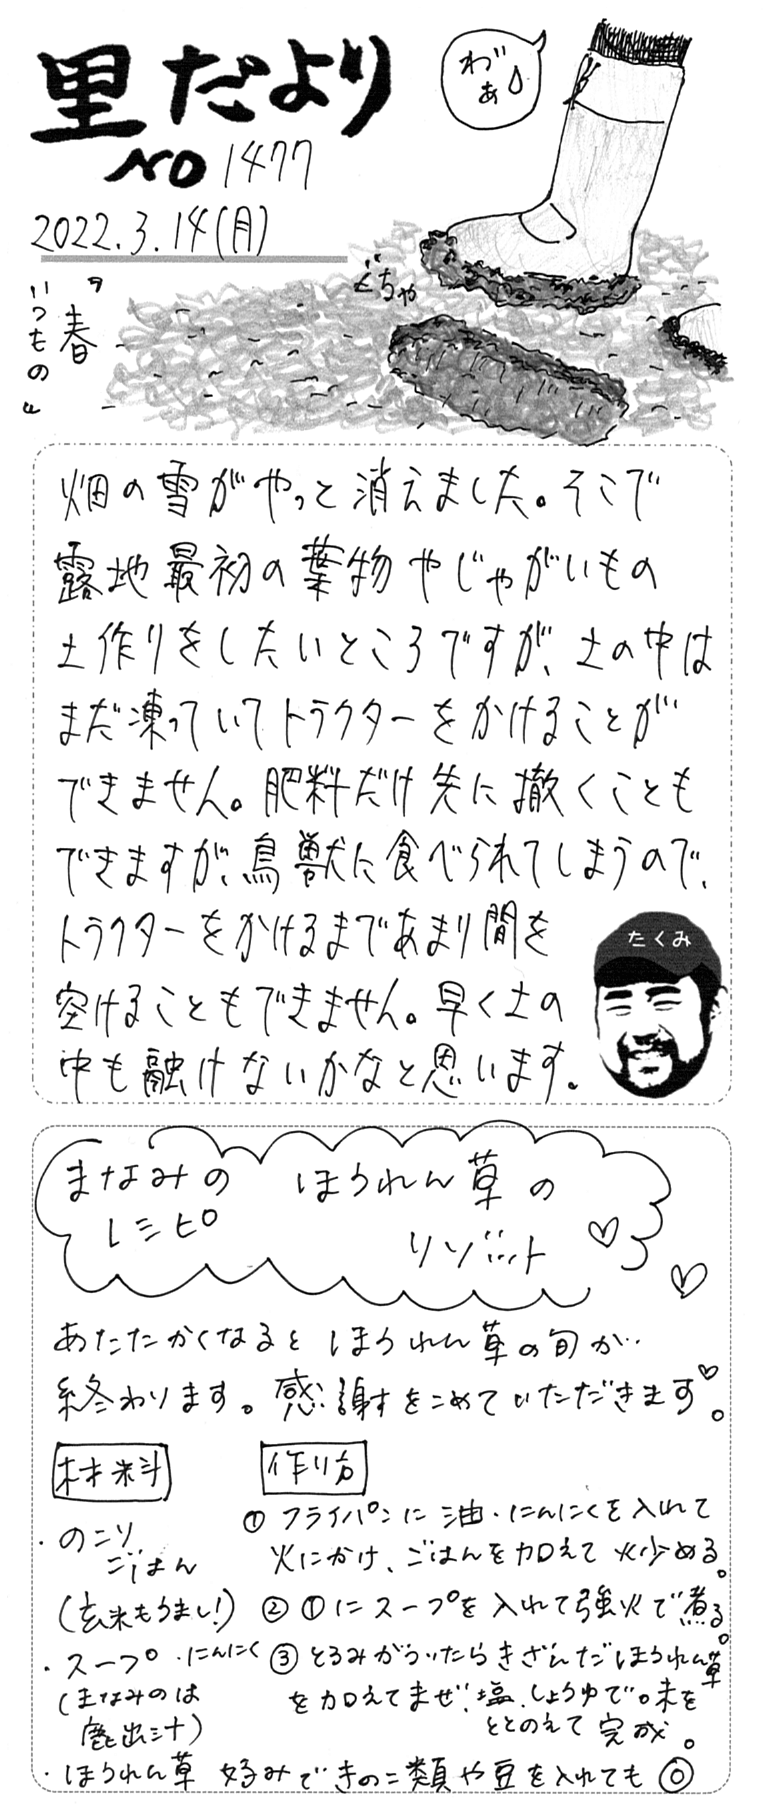 里だより
NO 1477
2022.3.14(月)
わ゛ぁ
ぐちゃ
〝春
いつもの〟
畑の雪がやっと消えました。そこで
露地最初の葉物やじゃがいもの
土作りをしたいところですが、土の中は
まだ凍っていてトラクターをかけることが
できません。肥料だけ先に撒くことも
できますが、鳥獣に食べられてしまうので、
トラクターをかけるまであまり間を
空けることもできません。早く土の
中も融けないかなと思います。
たくみ
まなみの
レシピ
ほうれん草の
リゾット
あたたかくなると ほうれん草の旬が
終わります。感謝をこめていただきます。
材料
・のこり
ごはん
(玄米もうまし!)
・スープ ・にんにく
(まなみのは
鹿出汁)
・ほうれん草
作り方
① フライパンに 油・にんにくを入れて
火にかけ、ごはんを加えて 炒める。
② ①にスープを入れて強火で煮る。
③ とろみがついたらきざんだほうれん草
を加えてまぜ、塩、しょうゆで味を
ととのえて 完成。
好みできのこ類や豆を入れても◎